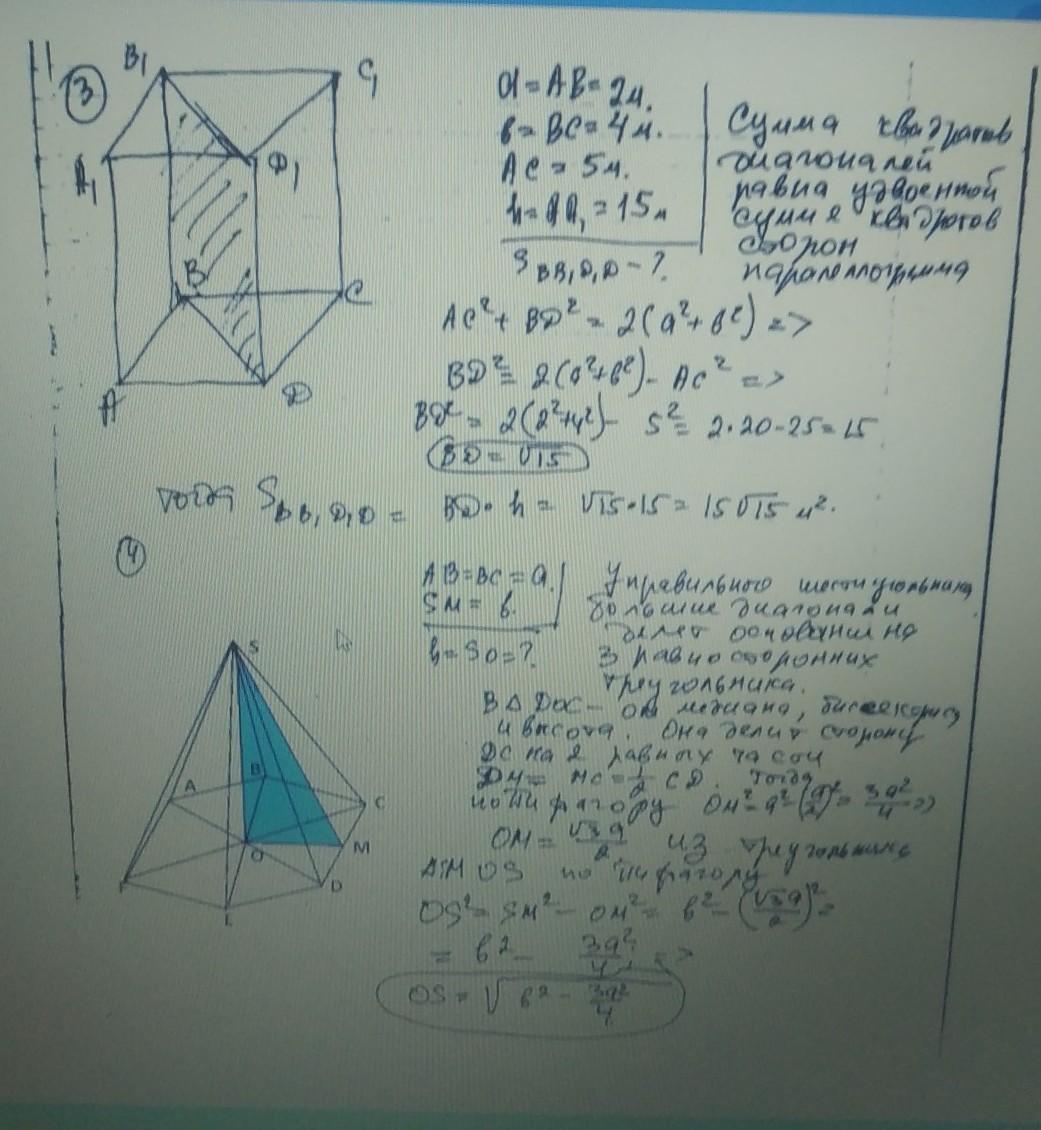 3
B₁ C₁
A₁ D₁
B C
A D
a = AB = 2м.
b = BC = 4м.
AC = 5м.
h = AA₁ = 15м
S BB₁D₁D - ?
Сумма квадратов
диагоналей
равна удвоенной
сумме квадратов
сторон
параллелограмма
AC² + BD² = 2(a² + b²) =>
BD² = 2(a²+b²) - AC² =>
BD² = 2(2²+4²) - 5² = 2·20-25=15
BD = √15
тогда S BB₁D₁D = BD·h = √15·15 = 15√15 м².
4
AB=BC=a
SM = b.
h=SO=?
У правильного шестиугольника
большие диагонали
делят основание на
3 равносторонних
треугольника.
В Δ DOC - OM медиана, биссектриса
и высота. Она делит сторону
DC на 2 равных части
DM = MC = 1/2 CD. Тогда
по Пифагору OM² = a² - (a/2)² = 3a²/4 =>
OM = √3a/2. из треугольника
MOS по Пифагору
OS² = SM² - OM² = b² - (√3a/2)² =
= b² - 3a²/4 =>
OS = √b² - 3a²/4
S
A B C
O M
D
L